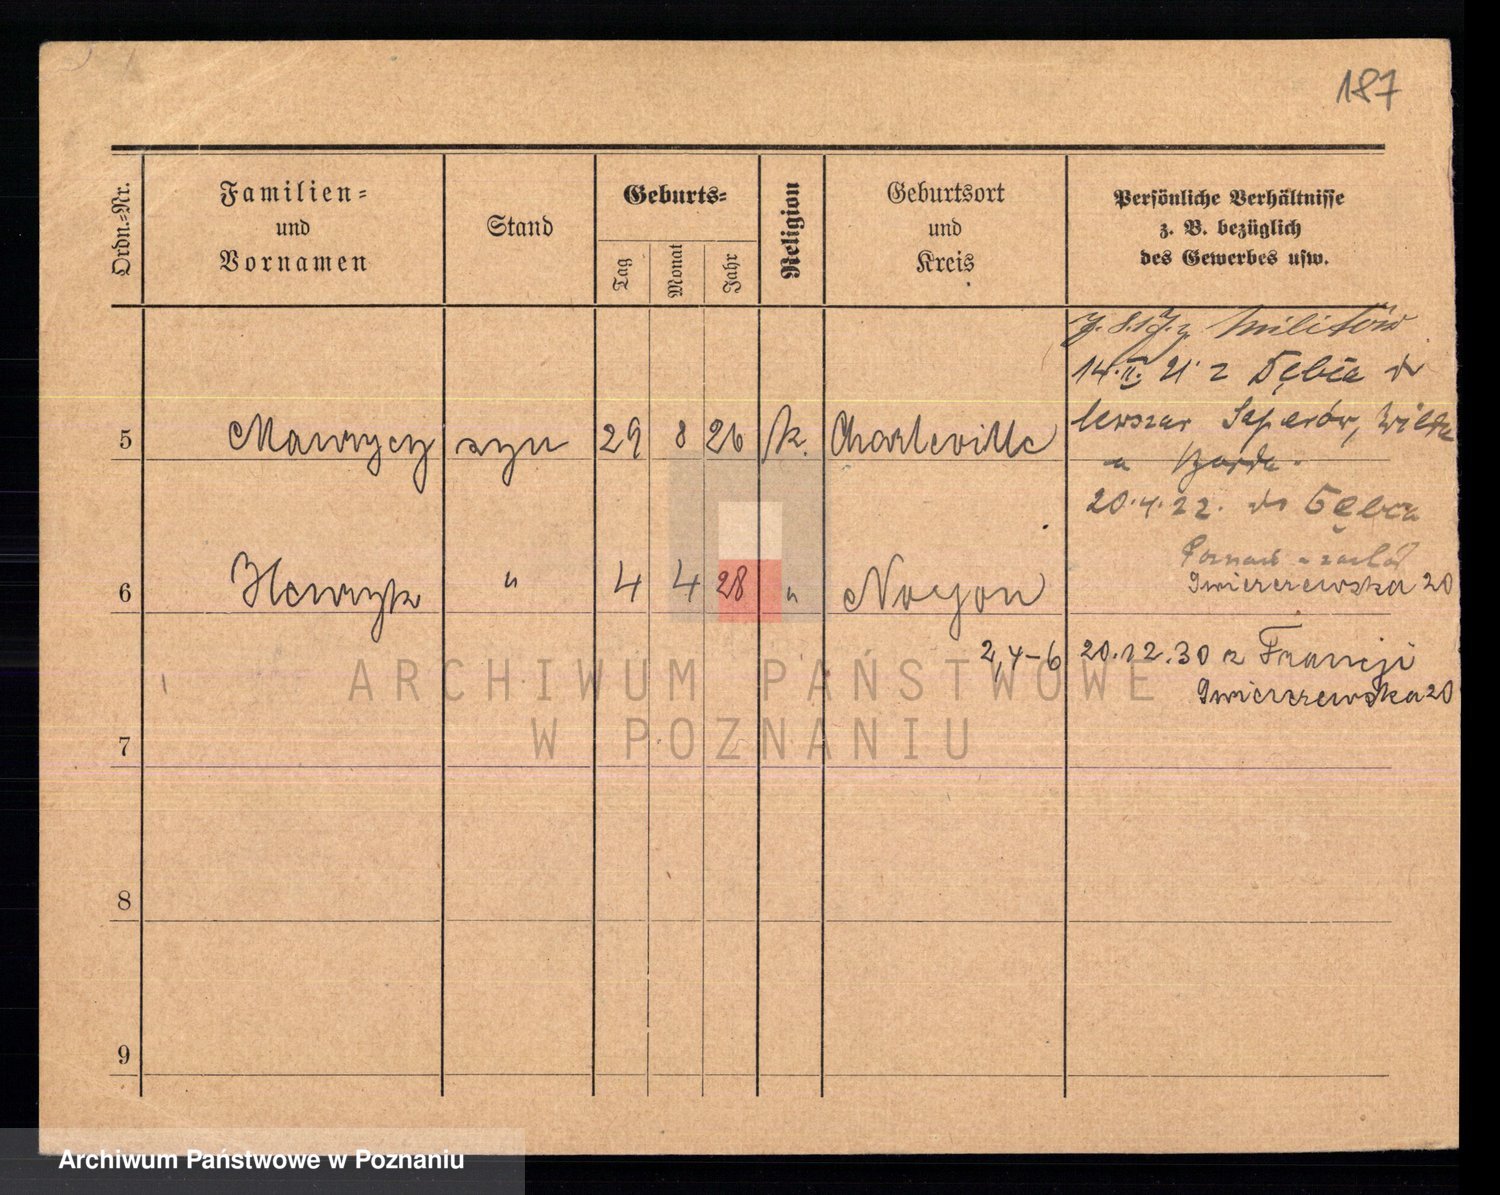 187
Ordn.-Nr.
Familien-
und
Vornamen
Stand
Geburts-
Tag
Monat
Jahr
Religion
Geburtsort
und
Kreis
Persönliche Verhältnisse
z. B. bezüglich
des Gewerbes usw.
14.II. 21 z Dębca do
Saperów, Wilda
5 Maurycy syn 29 8 26 k. Charleville
20.4.22. do Dębca
6 Henryk " 4 4 28 " Noyon
Gwierczewska 20
2,4-6 20.12.30 z Francji
Gwierczewska 20
7
8
9
ARCHIWUM PAŃSTWOWE
W POZNANIU
Archiwum Państwowe w Poznaniu